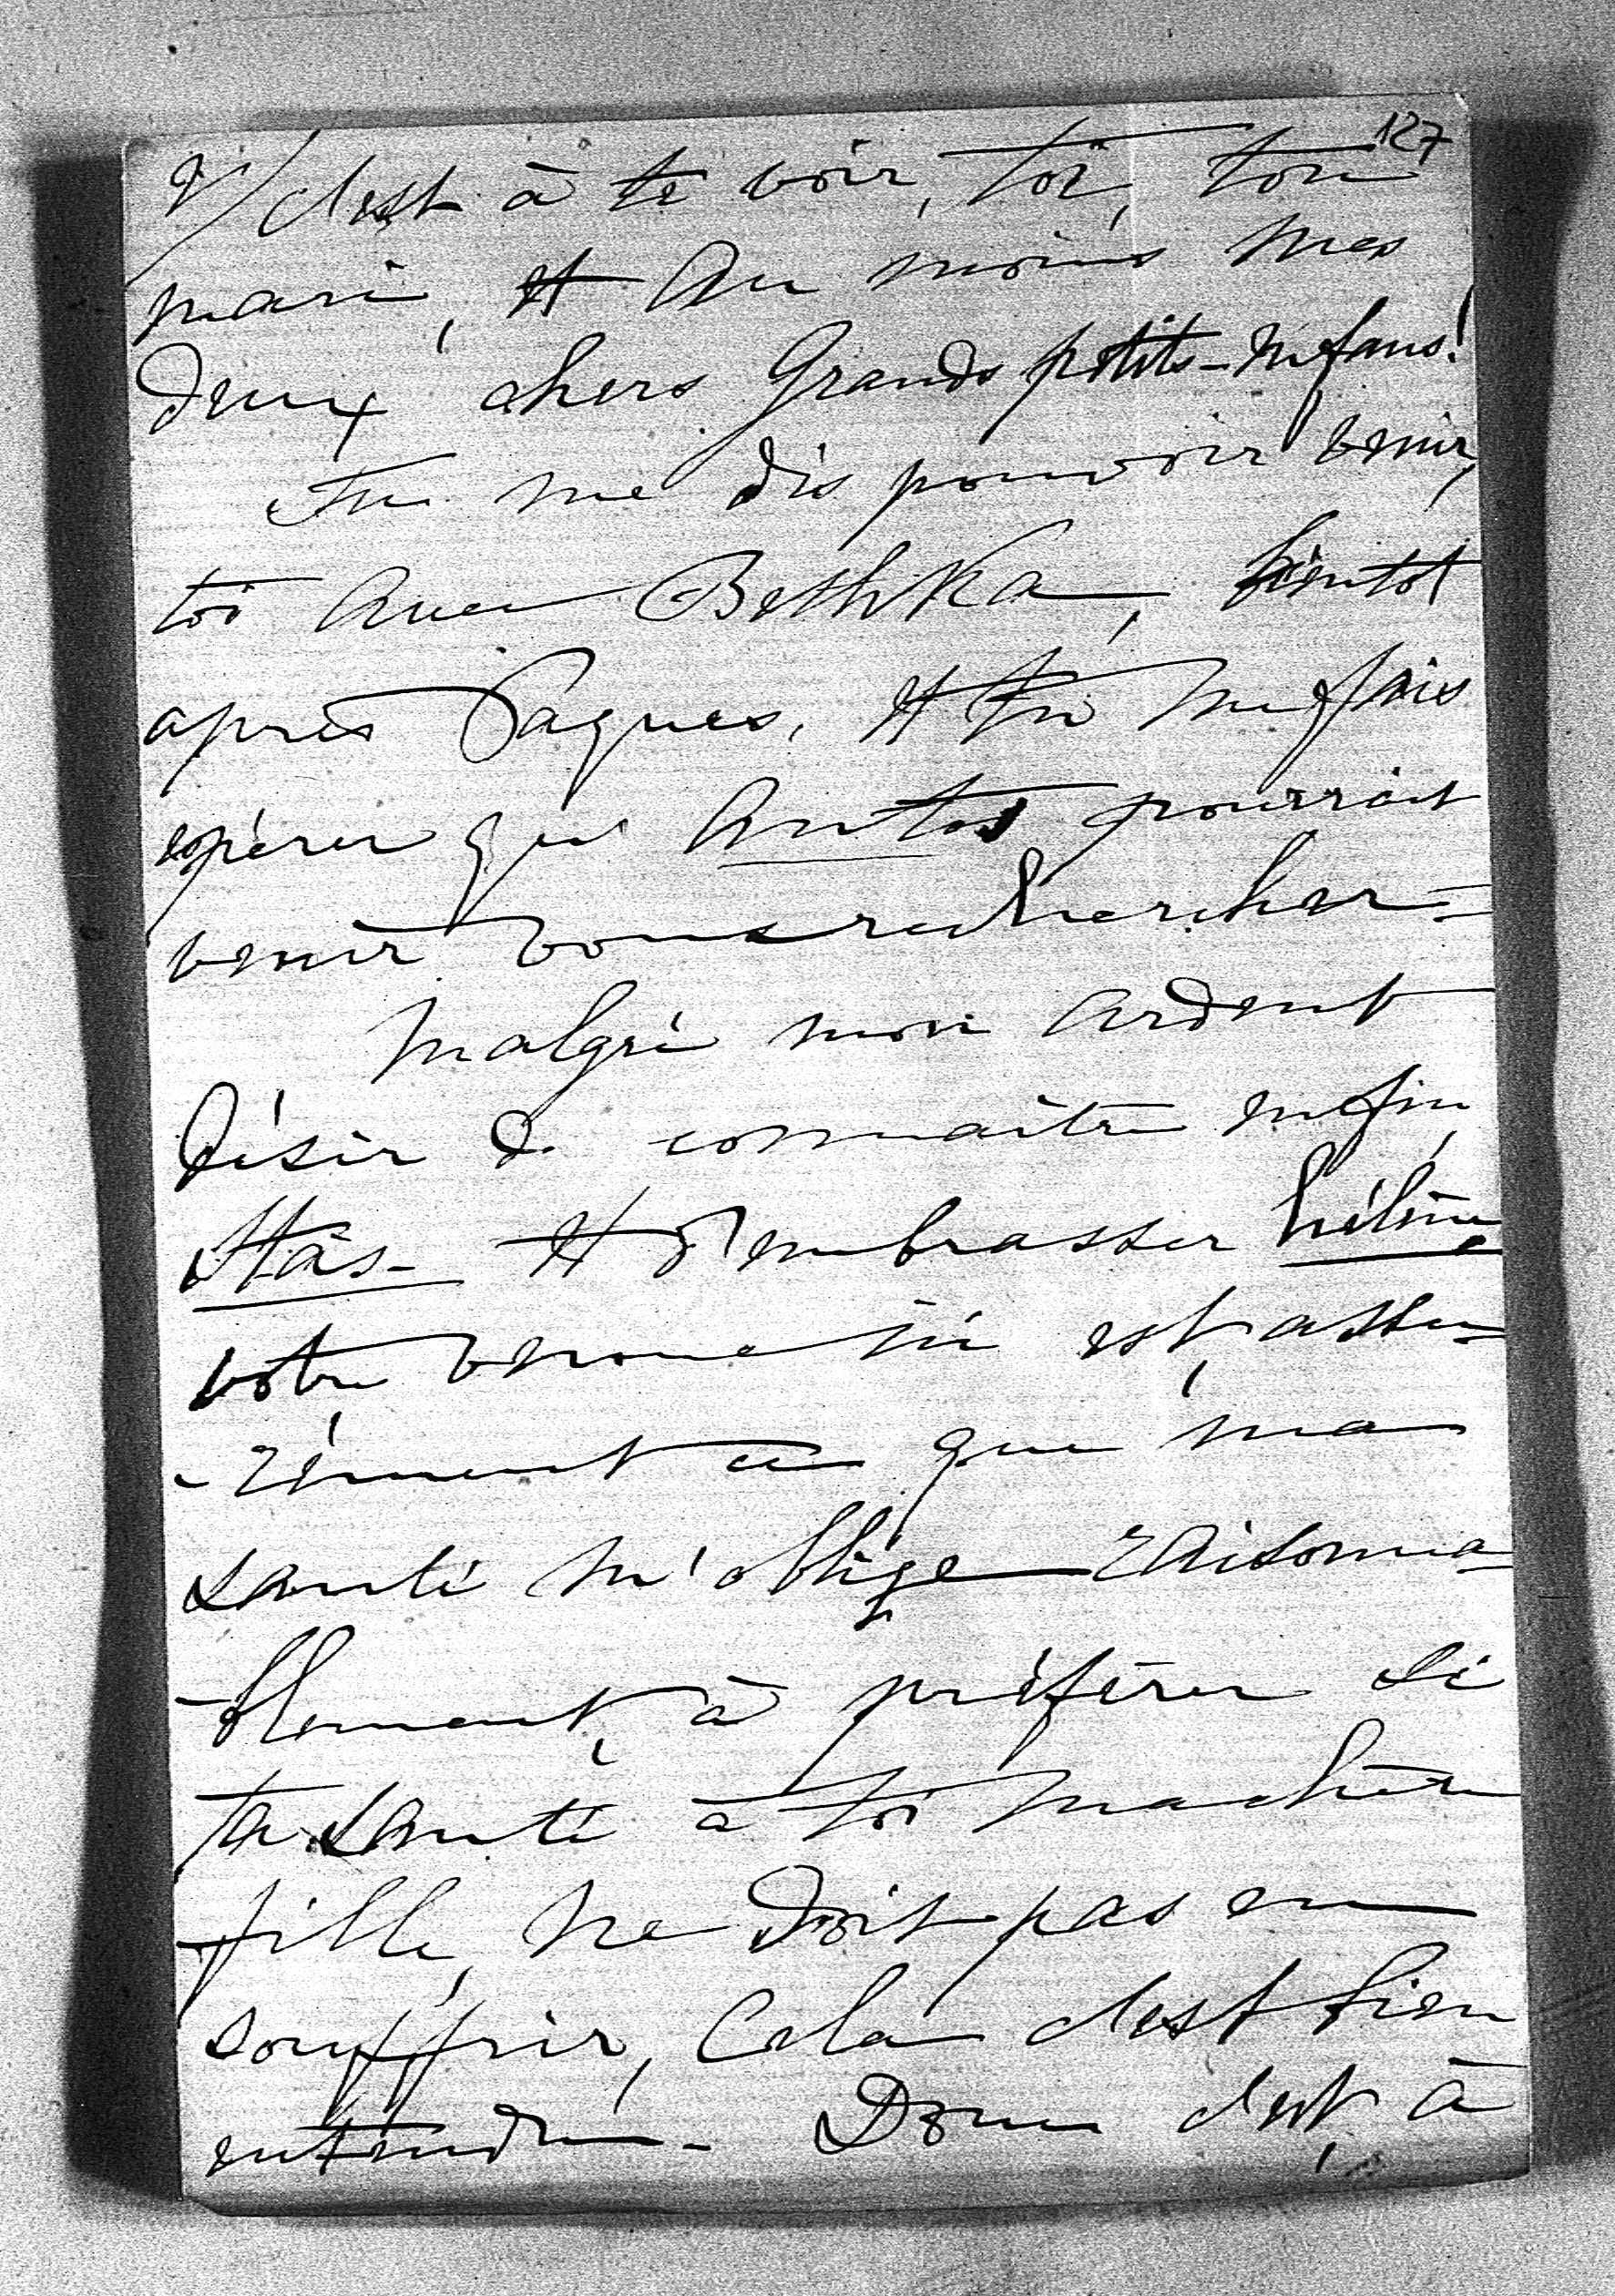 127
2/ c'est à te voir, toi, ton
mari, et au moins mes
deux chers grands petits-enfans!
Tu me dis pouvoir venir,
toi avec Bethka, bientot
après Pâques, et tu me fais
espérer que Antos pourrait
venir vous rechercher=
Malgré mon ardent
désir de connaître enfin,
Stas- et d'embrasser hélène
votre venue ici est assu=
-rément ce que ma
santé m'oblige raisonna=
-blement, à préférer si
ta santé à toi ma chère
fille, ne doit pas en
souffrir, Cela c'est bien
entendu.- Donc c'est à